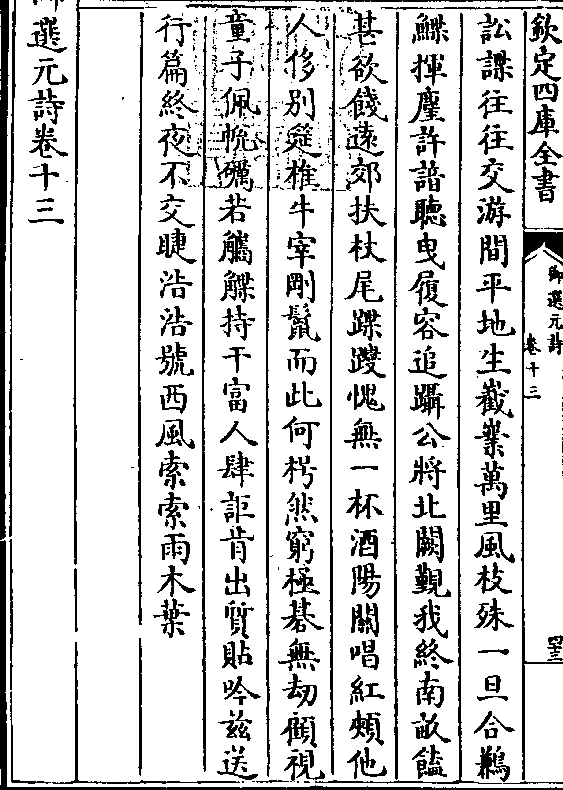 欽定四庫全書
御選元詩
卷十三
四十三
訟諜往往交游間平地生嶻嶪萬里風枝殊一旦合鶼
鰈揮麈許諳聽曳履容追躡公將北闕覲我終南畝饁
甚欲餞遠郊扶杖尾踝踥愧無一杯酒陽關唱紅頰他
人侈別筵椎牛宰剛鬣而此何枵然窮極棊無刼顧視
童子佩帨礪若觿韘持干富人肆詎肯出質貼吟兹送
行篇終夜不交睫浩浩號西風索索雨木葉
御選元詩卷十三